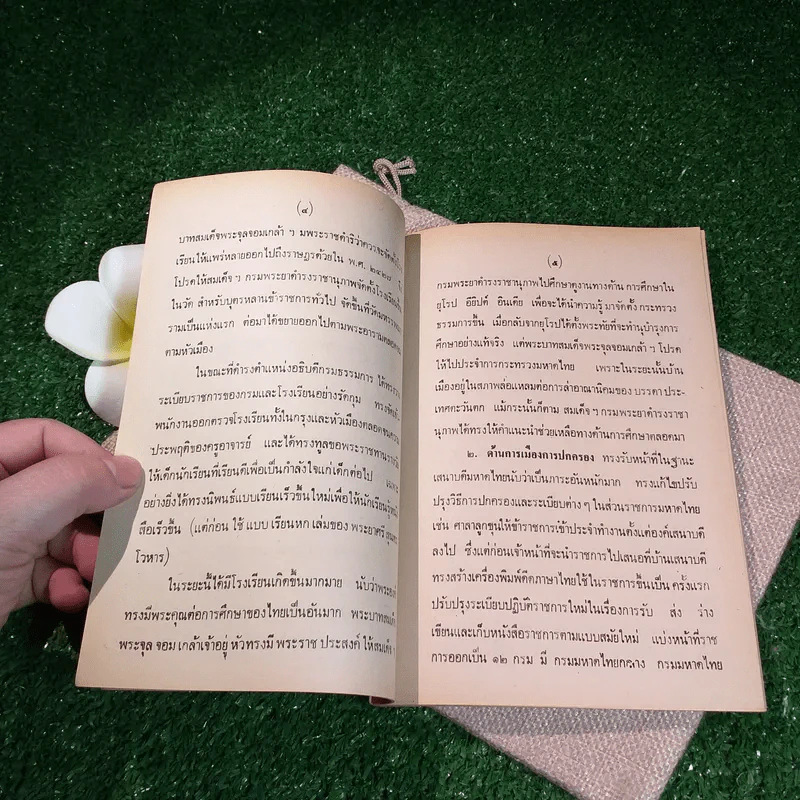 (๔)
บาทสมเด็จพระจุลจอมเกล้า ฯ มีพระราชดำริว่าควรจะจัดตั้งโรง
เรียนให้แพร่หลายออกไปถึงราษฎรด้วยใน พ.ศ. ๒๔๒๗
โปรดให้สมเด็จ ฯ กรมพระยาดำรงราชานุภาพจัดตั้งโรงเรียนขึ้น
ในวัด สำหรับบุตรหลานข้าราชการทั่วไป จัดขึ้นที่วัดมหรรณพา
รามเป็นแห่งแรก ต่อมาได้ขยายออกไปตามพระอารามตลอดจน
ตามหัวเมือง
ในขณะที่ดำรงตำแหน่งอธิบดีกรมธรรมการ ได้ทรง
ระเบียบราชการของกรมและโรงเรียนอย่างรัดกุม ทรงจัดให้
พนักงานออกตรวจโรงเรียนทั้งในกรุงและหัวเมืองตลอดจนความ
ประพฤติของครูอาจารย์ และได้ทรงทูลขอพระราชทานรางวัล
ให้เด็กนักเรียนที่เรียนดีเพื่อเป็นกำลังใจแก่เด็กต่อไป เฉพาะ
อย่างยิ่งได้ทรงนิพนธ์แบบเรียนเร็วขึ้นใหม่เพื่อให้นักเรียนรู้หนัง
สือเร็วขึ้น (แต่ก่อน ใช้ แบบ เรียน หก เล่มของ พระยาศรี สุนทร
โวหาร)
ในระยะนี้ได้มีโรงเรียนเกิดขึ้นมากมาย นับว่าพระองค์
ทรงมีพระคุณต่อการศึกษาของไทยเป็นอันมาก พระบาทสมเด็จ
พระจุล จอม เกล้าเจ้าอยู่ หัวทรงมี พระราช ประสงค์ ให้สมเด็จ ฯ
(๕)
กรมพระยาดำรงราชานุภาพไปศึกษาดูงานทางด้าน การศึกษาใน
ยุโรป อียิปต์ อินเดีย เพื่อจะได้นำความรู้ มาจัดตั้ง กระทรวง
ธรรมการขึ้น เมื่อกลับจากยุโรปได้ตั้งพระทัยที่จะทำนุบำรุงการ
ศึกษาอย่างแท้จริง แต่พระบาทสมเด็จพระจุลจอมเกล้า ฯ โปรด
ให้ไปประจำการกระทรวงมหาดไทย เพราะในระยะนั้นบ้าน
เมืองอยู่ในสภาพล่อแหลมต่อการล่าอาณานิคมของ บรรดา ประ-
เทศตะวันตก แม้กระนั้นก็ตาม สมเด็จ ฯ กรมพระยาดำรงราชา
นุภาพก็ได้ทรงให้คำแนะนำช่วยเหลือทางด้านการศึกษาตลอดมา
๒. ด้านการเมืองการปกครอง ทรงรับหน้าที่ในฐานะ
เสนาบดีมหาดไทยนับว่าเป็นภาระอันหนักมาก ทรงแก้ไขปรับ
ปรุงวิธีการปกครองและระเบียบต่าง ๆ ในส่วนราชการมหาดไทย
เช่น ศาลาลูกขุนให้ข้าราชการเข้าประจำทำงานตั้งแต่องค์เสนาบดี
ลงไป ซึ่งแต่ก่อนเจ้าหน้าที่จะนำราชการไปเสนอที่บ้านเสนาบดี
ทรงสร้างเครื่องพิมพ์ดีดภาษาไทยใช้ในราชการขึ้นเป็น ครั้งแรก
ปรับปรุงระเบียบปฏิบัติราชการใหม่ในเรื่องการรับ ส่ง ร่าง
เขียนและเก็บหนังสือราชการตามแบบสมัยใหม่ แบ่งหน้าที่ราช
การออกเป็น ๑๒ กรม มี กรมมหาดไทยกลาง กรมมหาดไทย